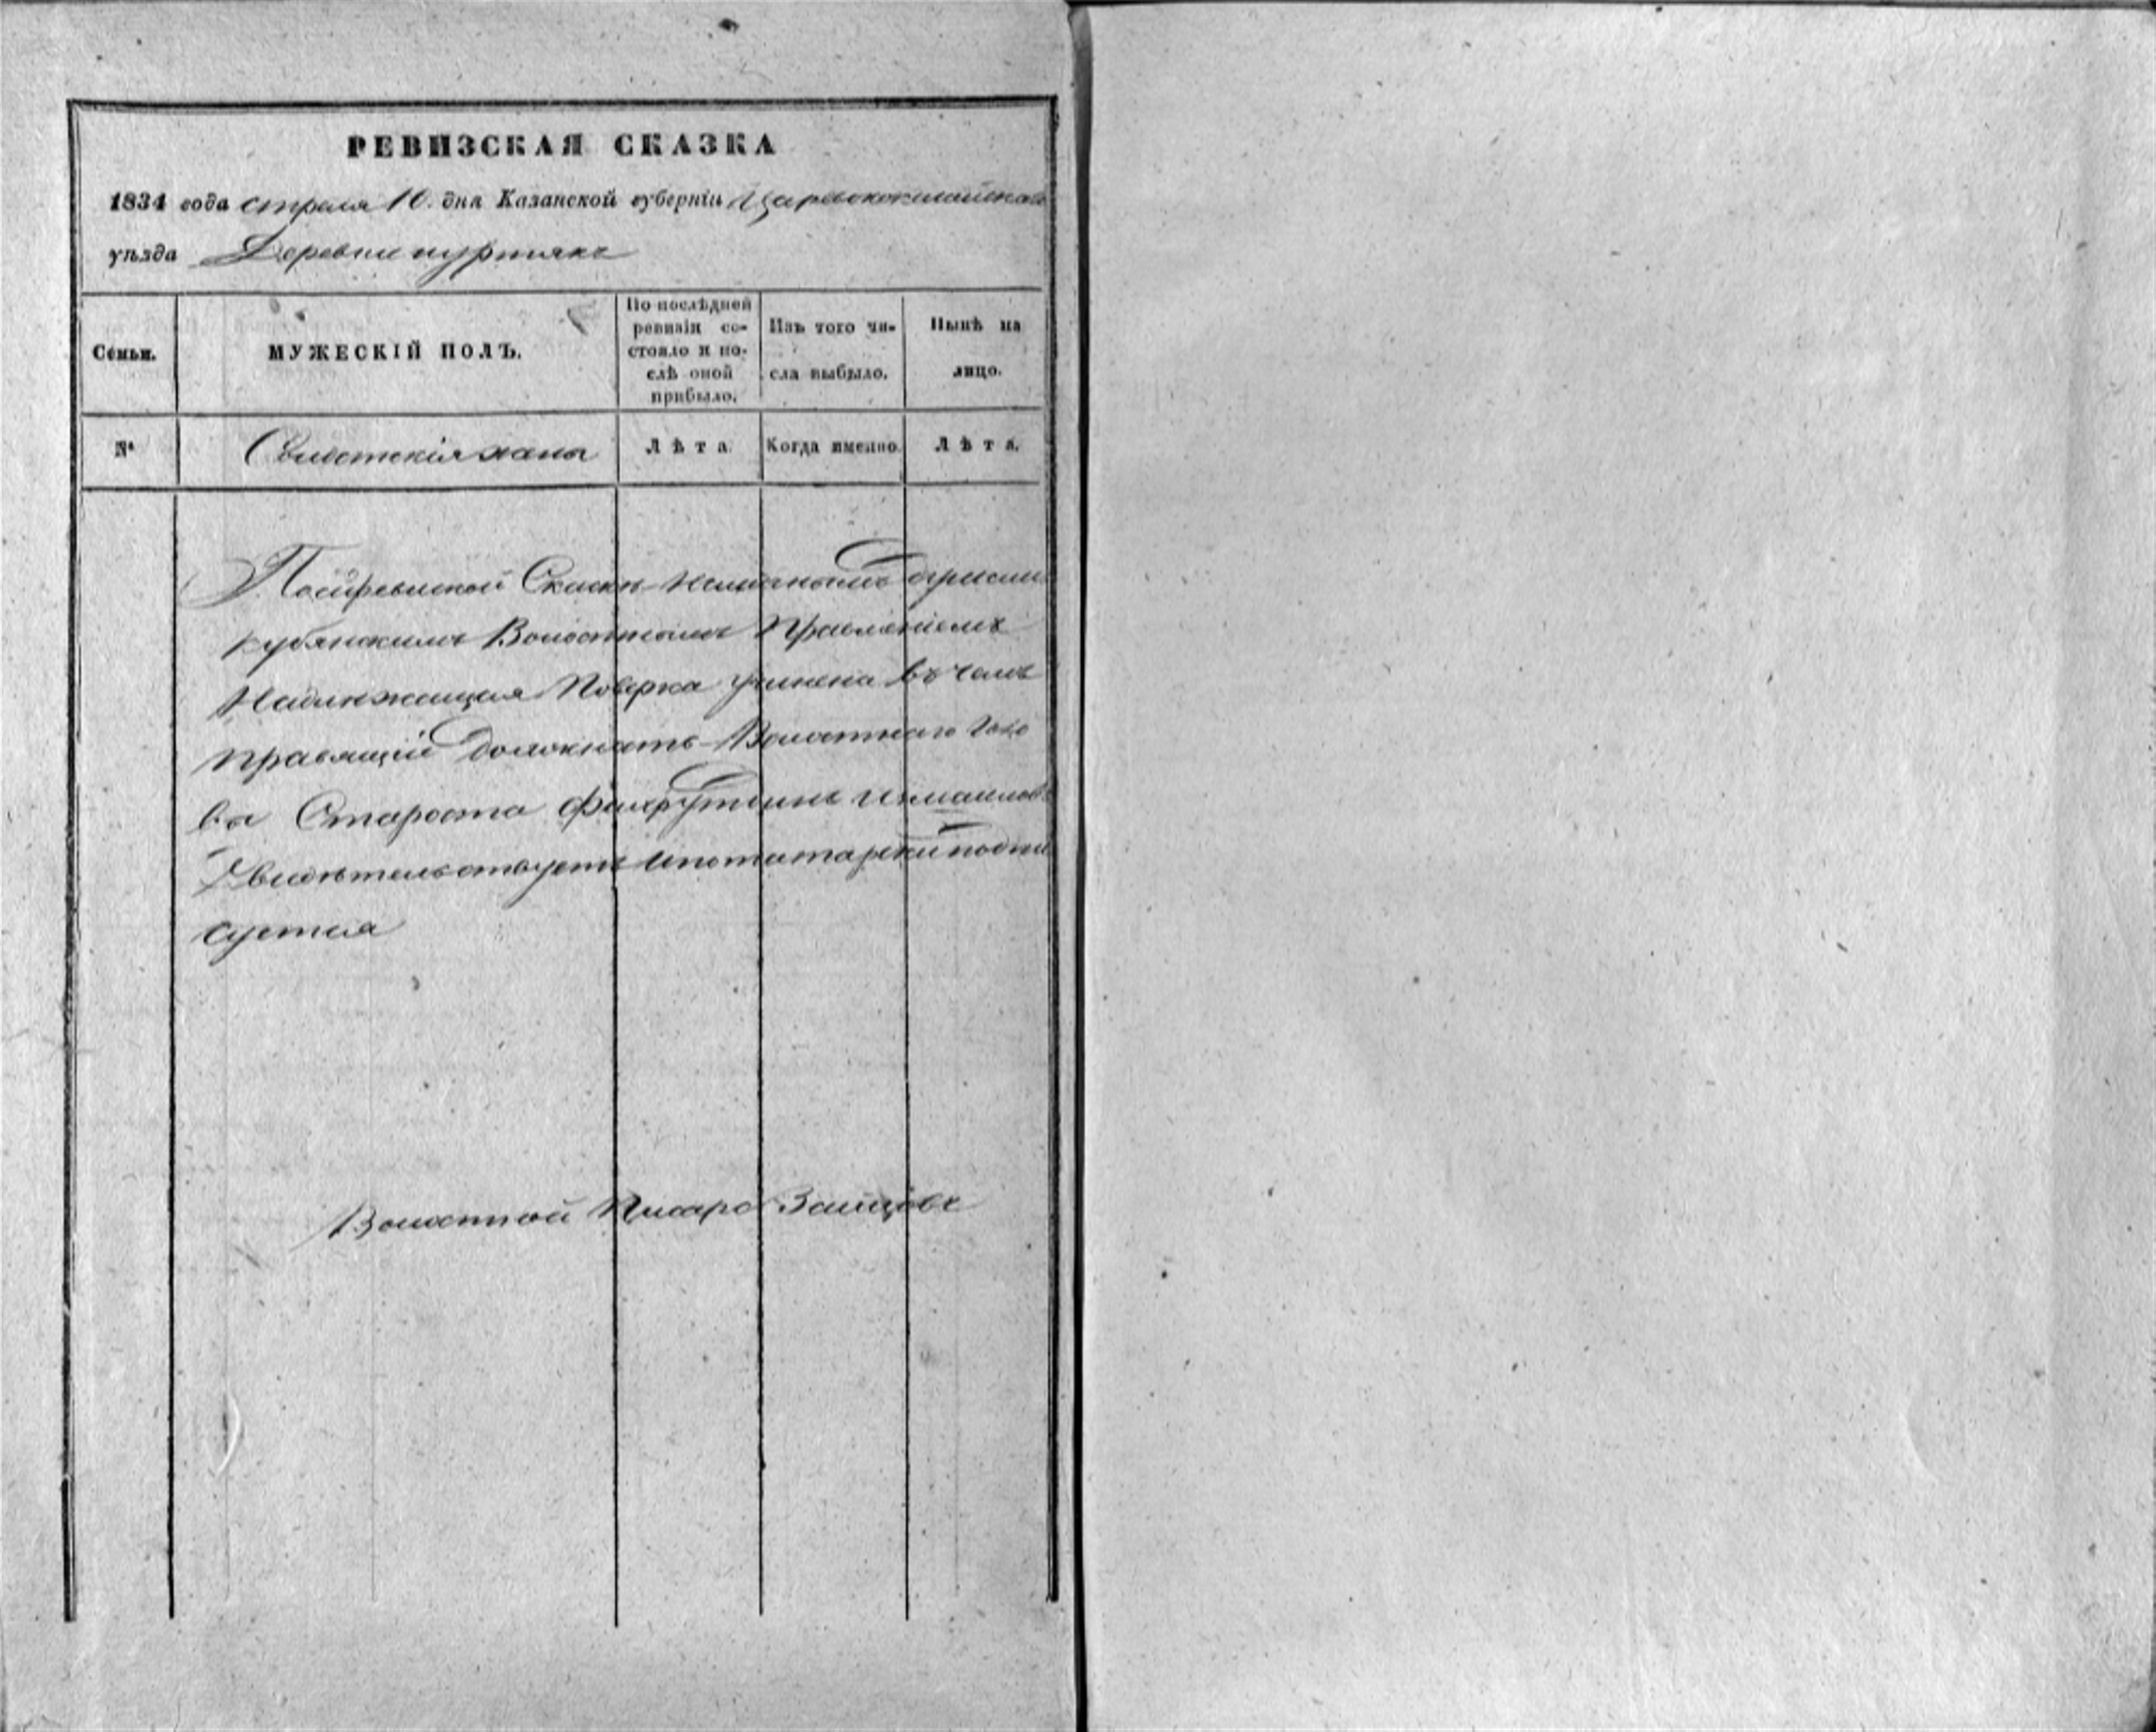 РЕВИЗСКАЯ СКАЗКА
1834 года апреля 10. дня Казанской губерніи Царевококшайскаго
уѣзда Деревни
Семьи.
МУЖЕСКІЙ ПОЛЪ.
По послѣдней
ревизіи со-
стояло и по-
слѣ оной
прибыло.
Изъ того чи-
сла выбыло.
Нынѣ на
лицо.
№
Лѣта.
Когда именно.
Лѣта.
Сказки
Волостнымъ Правленіемъ
Надлежащая Поверка учинена въ чемъ
правящій должность Волостнаго Голо
вы Староста
Свидѣтельствуетъ ипотатарски подпи
суется
Волостной Писарь Зайцовъ